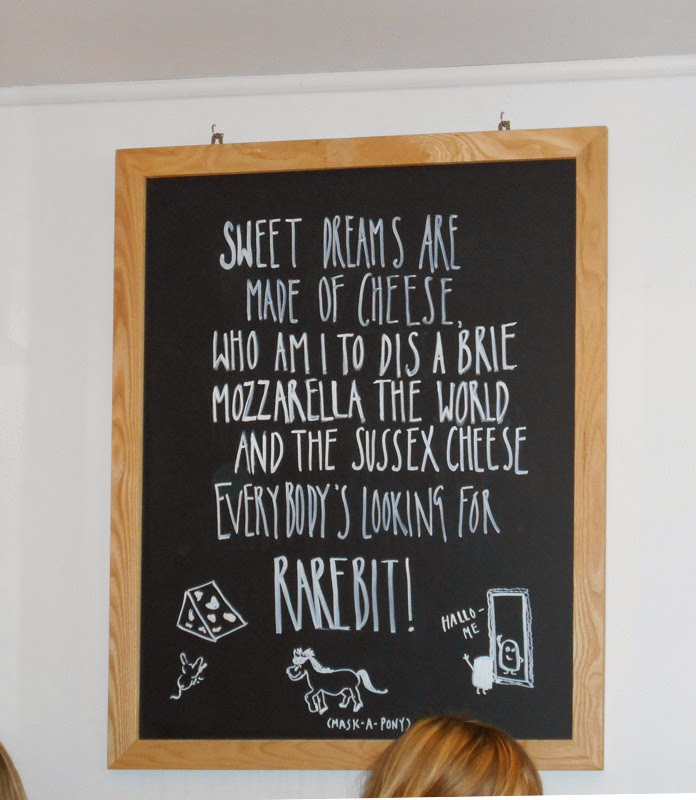 SWEET DREAMS ARE
MADE OF CHEESE,
WHO AM I TO DIS A BRIE
MOZZARELLA THE WORLD
AND THE SUSSEX CHEESE
EVERYBODY'S LOOKING FOR
RAREBIT!
HALLO-
ME
(MASK-A-PONY)